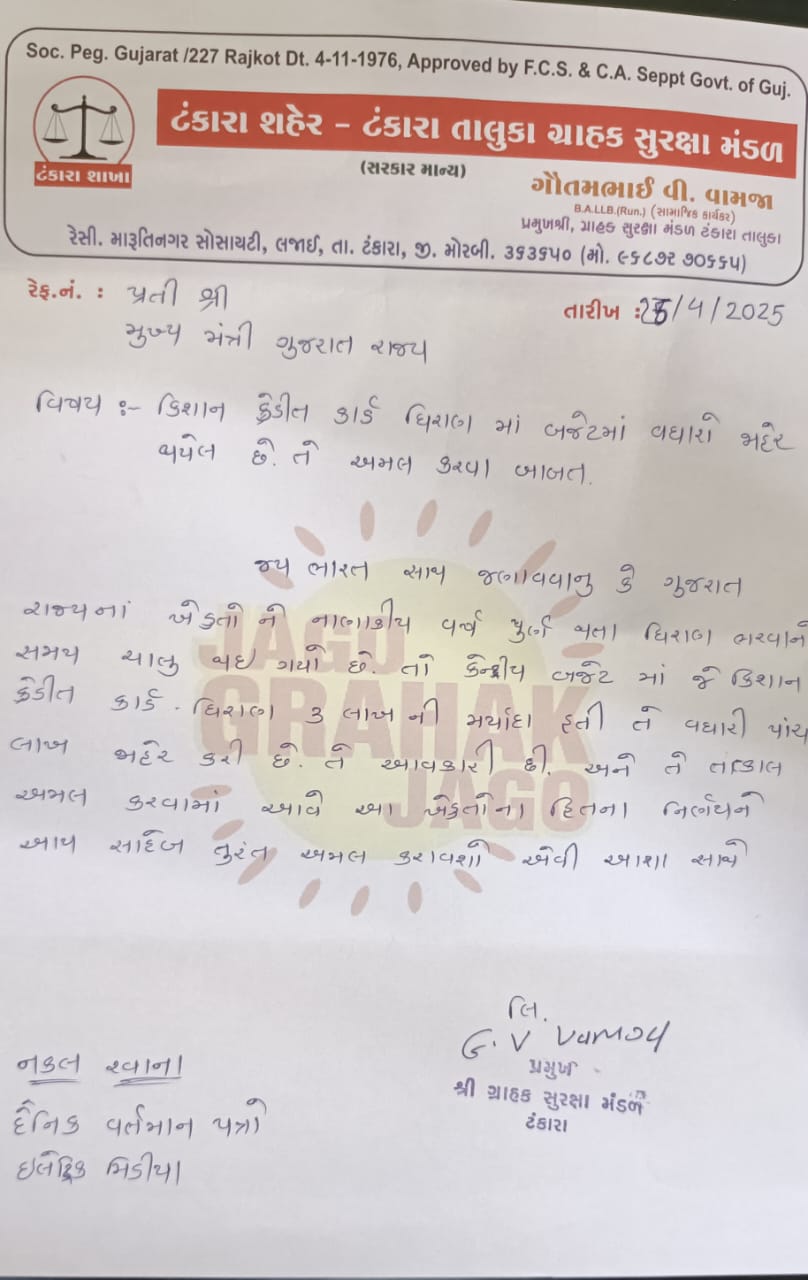 Soc. Peg. Gujarat /227 Rajkot Dt. 4-11-1976, Approved by F.C.S. & C.A. Seppt Govt. of Guj.
ટંકારા શહેર - ટંકારા તાલુકા ગ્રાહક સુરક્ષા મંડળ
ટંકારા શાખા
(સરકાર માન્ય)
ગૌતમભાઈ વી. વામજા
B.A.LLB.(Run.) (સામાજિક કાર્યકર)
પ્રમુખશ્રી, ગ્રાહક સુરક્ષા મંડળ ટંકારા તાલુકા
રેસી. મારૂતિનગર સોસાયટી, લજાઈ, તા. ટંકારા, જી. મોરબી. ૩૬૩૬૫૦ (મો. ૯૬૮૭૨ ૭૦૬૬૫)
રેફ.નં. : પ્રતી શ્રી
તારીખ : /4/2025
મુખ્ય મંત્રી ગુજરાત રાજ્ય
વિષય :- કિશાન ક્રેડીત કાર્ડ ધિરાણ માં બજેટમાં વધારો જાહેર
થયેલ છે. તે અમલ કરવા બાબત.
જય ભારત સાથ જણાવવાનુ કે ગુજરાત
રાજ્યનાં ખેડુતો ને નાણાકીય વર્ષ પુર્ણ થતા ધિરાણ ભરવાનો
સમય ચાલુ થઇ ગયો છે. તો કેન્દ્રીય બજેટ માં જે કિશાન
ક્રેડીત કાર્ડ. ધિરાણ 3 લાખ ની મર્યાદા હતી તે વધારી પાંચ
લાખ જાહેર કરી છે. તે આવકારી છી. અને તે તત્કાલ
અમલ કરવામાં આવે આ ખેડુતોના હિતના નિર્ણયને
આપ સાહેબ તુરંત અમલ કરાવશો એવી આશા સાથે
JAGO
GRAHAK
JAGO
લિ.
G. V Vamja
પ્રમુખ
શ્રી ગ્રાહક સુરક્ષા મંડળ
ટંકારા
નકલ રવાના
દૈનિક વર્તમાન પત્રો
ઇલેક્ટ્રિક મિડીયા